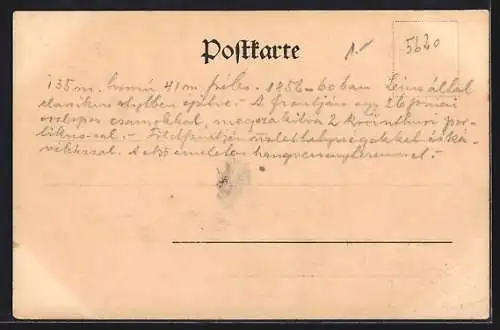 Postkarte
1.-
5620
135 m. hosszú 41 m. széles. - 1856-60 ban Leins által
classikus stylben építve. - A frontján egy 26 jóniai
oszlopos csarnokkal, megszakítva 2 korinthusi por-
tikus-sal. - Földszintjén üzlethelyiségekkel és ká-
véházzal. A első emeleten hangversenyteremmel. -